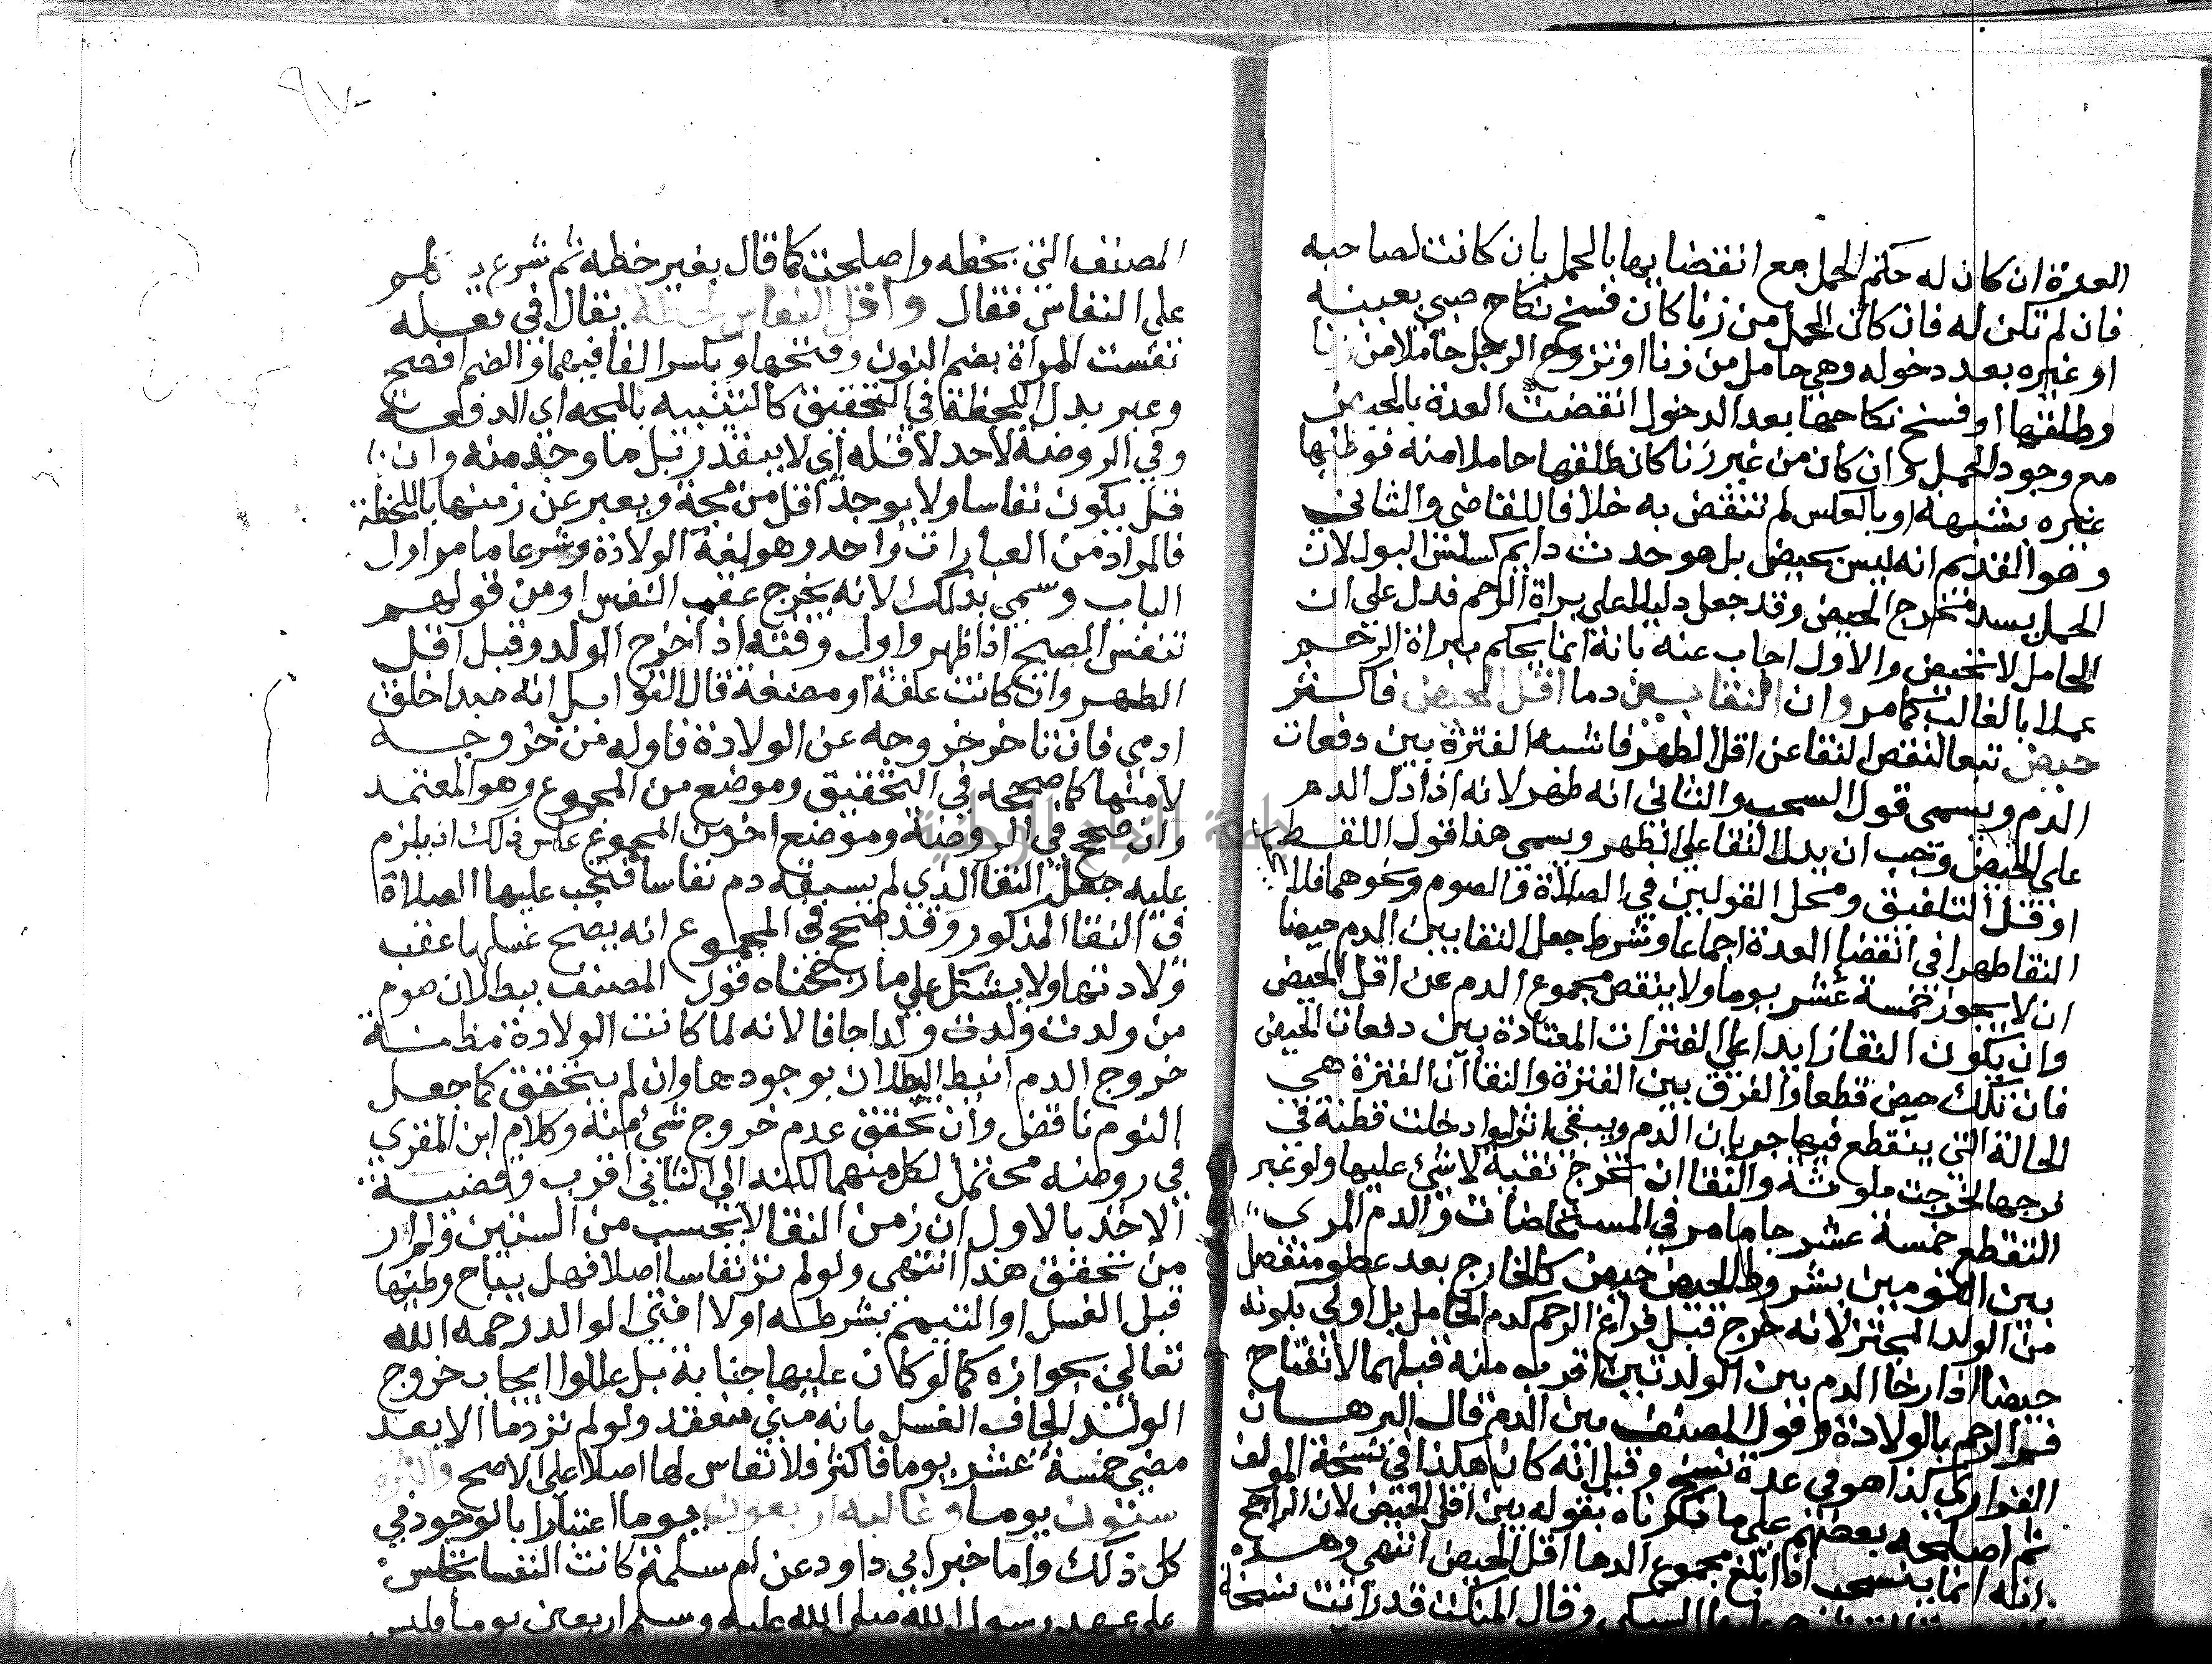 العدة ان كان له حكم الحمل مع انقضايها بالحمل بان كانت لصاحبه
فان لم تكن له فان كان الحمل من زنا كان فسخ نكاح صبي بعيبه
او غيره بعد دخوله وهي حامل من زنا او تزوج الرجل حاملا من زنا
وطلقها او فسخ نكاحها بعد الدخول انقضت العدة بالحيض
مع وجود الحمل وان كان من غير زنا كان طلقها حاملا منه فوطئها
غيره بشبهة او بالعكس لم تنقض به خلافا للقاضي والثاني
وهو القديم انه ليس بحيض بل هو حدث دايم كسلس البول لان
الحمل يسد مخرج الحيض وقد جعل دليلا على براة الرحم فدل على ان
الحامل لا تحيض والاول اجاب عنه بانه انما يحكم ببراة الرحم
عملا بالغالب كما مر وان النقا بين دما اقل الحيض فاكثر
حيض تبعا لنقص النقا عن اقل الطهر فاشبه الفترة بين دفعات
الدم ويسمى قول السحب والثاني انه طهر لانه اذا دل الدم
على الحيض وجب ان يدل النقا على الطهر ويسمى هذا قول اللقط
او قل التلفيق ومحل القولين في الصلاة والصوم ونحوهما فلا
النقا طهرا في انقضا العدة اجماعا وشرط جعل النقا بين الدم حيضا
ان لا يجوز خمسة عشر يوما ولا ينقص مجموع الدم عن اقل الحيض
وان يكون النقا زايدا على الفترات المعتادة بين دفعات الحيض
فان تلك حيض قطعا والفرق بين الفترة والنقا ان الفترة هي
الحالة التي ينقطع فيها جريان الدم ويبقى اثر لو ادخلت قطنة في
فرجها لخرجت ملوثة والنقا ان تخرج نقية لا شئ عليها ولو عبر
التقطع خمسة عشر جا ما مر في المستحاضات والدم المري
بين التومين بشروط الحيض حيض كالخارج بعد عضو منفصل
من الولد المجتز لانه خرج قبل فراغ الرحم كدم الحامل بل اولى بكونه
حيضا اذ ارخا الدم بين الولدتين اقرب منه قبلهما لانفتاح
فم الرحم بالولادة وقول المصنف بين الدم قال البرهان
الفزاري كذا هو في عدة نسخ وقيل انه كان هكذا في نسخة المولف
ثم اصلحه بعضهم على ما ذكرناه بقوله بين اقل الحيض لان الراجح
انه انما ينسحب اذا بلغ مجموع الدما اقل الحيض انتهى وهذه
السبكي وقال المنكت قد رايت نسخة
المصنف التي بخطه واصلحت كما قال بغير خطه ثم شرع يتكلم
على النفاس فقال واقل النفاس لحظة يقال في فعله
نفست المراة بضم النون وفتحها وبكسر الفا فيهما والضم افصح
وعبر بدل اللحظة في التحقيق كالتنبيه بالمجة اي الدفعة
وفي الروضة لا حد لاقله اي لا يتقدر بل ما وجد منه وان
قل يكون نفاسا ولا يوجد اقل من مجة ويعبر عن زمنها باللحظة
فالمراد من العبارات واحد وهو لغة الولادة وشرعا ما مر اول
الباب وسمي بذلك لانه يخرج عقب النفس او من قولهم
تنفس الصبح اذا ظهر واول وقته اذا خرج الولد وقبل اقل
الطهر وان كانت علقة او مضغة قال القوابل انه مبدا خلق
ادمي فان تاخر خروجه عن الولادة فاوله من خروجه
لا منها كما صححه في التحقيق وموضع من المجموع وهو المعتمد
وان صحح في الروضة وموضع اخر من المجموع عكس ذلك اذ يلزم
عليه جعل النقا الذي لم يسبقه دم نفاسا فتجب عليها الصلاة
في النقا المذكور وقد صحح في المجموع انه يصح غسلها عقب
ولادتها ولا يشكل على ما رجحناه قول المصنف ببطلان صوم
من ولدت ولدت ولدا جافا لانه لما كانت الولادة مظنة
خروج الدم انيط البطلان بوجودها وان لم يتحقق كما جعل
النوم ناقضا وان تحقق عدم خروج شئ منه وكلام ابن المقري
في روضه محتمل لكل منهما لكنه الى الثاني اقرب وقضية
الاخذ بالاول ان زمن النقا لا يحسب من الستين ولم ار
من تحقق هذا انتهى ولو لم تر نفاسا اصلا فهل يباح وطئها
قبل الغسل او التيمم بشرطه او لا افتى الوالد رحمه الله
تعالى بجوازه كما لو كان عليها جنابة بل عللوا ايجاب خروج
الولد الجاف الغسل بانه مني منعقد ولو لم تر دما الا بعد
مضي خمسة عشر يوما فاكثر فلا نفاس لها اصلا على الاصح واكثره
ستون يوما وغالبه اربعون يوما اعتبارا بالوجود في
كل ذلك واما خبر ابي داود عن ام سلمة كانت النفسا تجلس
على عهد رسول الله صلى الله عليه وسلم اربعين يوما فليس